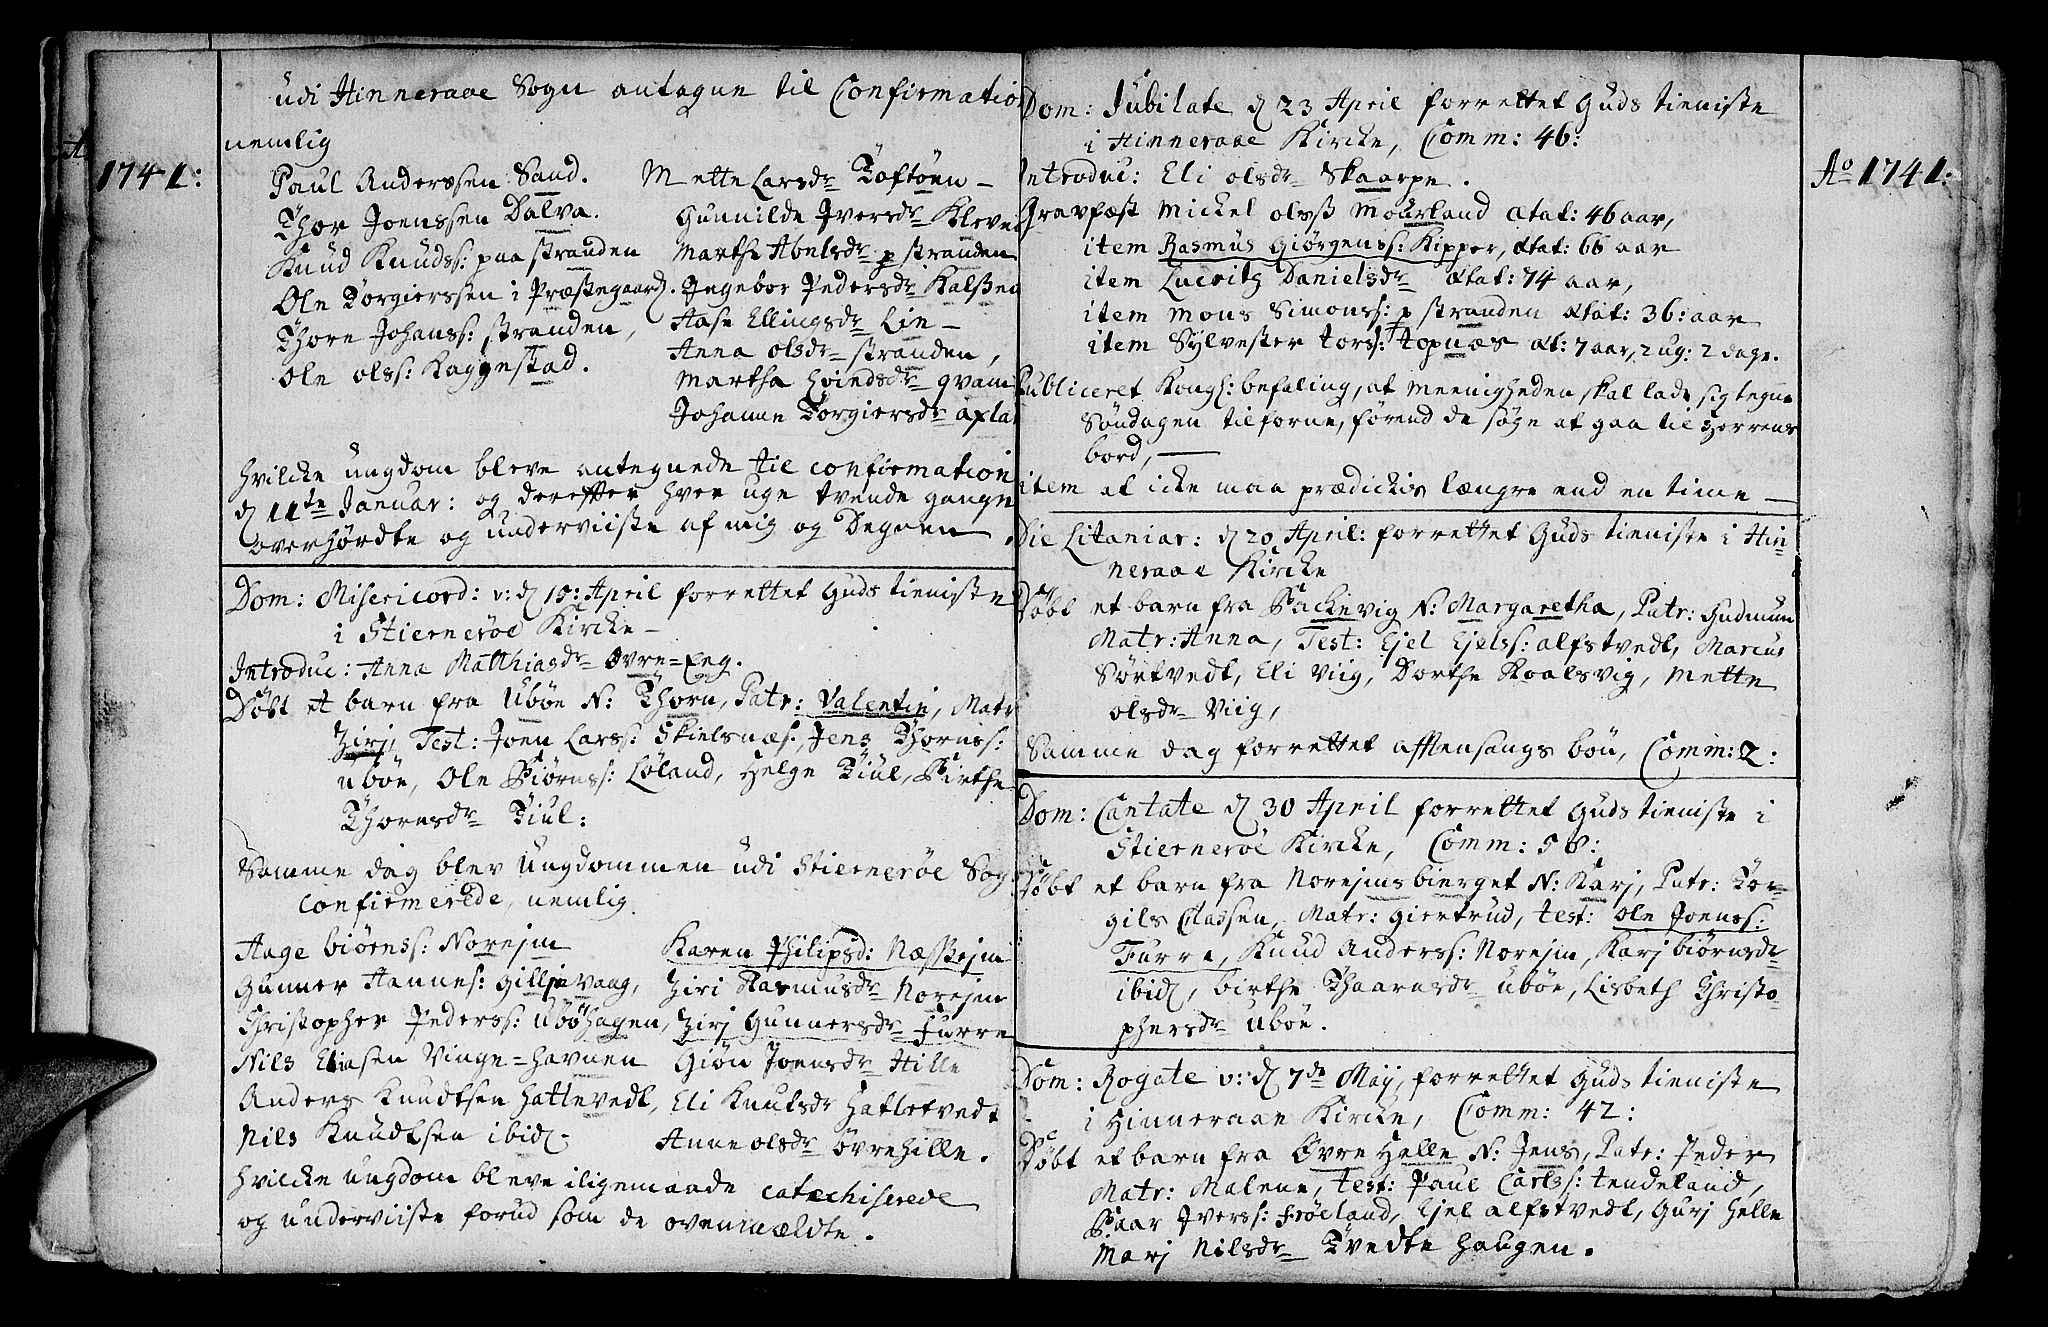 1741:
udi Hinneraae Sogn antagne til Confirmatio
nemlig
Paul Anderssen Sand.
Thor Joenssen Dalva.
Knud Knudss: paa stranden
Ole Torgierssen i Præstegaard.
Thore Johanss: stranden,
Ole olss: Kaggestad.
Mette Larsdr Toftøen
Gunnilde Iversdr Klevei
Martha Abelsdr p stranden
Ingebor Pedersdr
Aase Ellingsdr Lie
Anna olsdr stranden,
Martha Eivindsdr qvam
Johanne Torgiersdr axla
hvilcke ungdom bleve antegnede til confirmation
d 11te Januar: og derefter hver uge tvende gange
overhørdte og underviiste af mig og Degnen.
Dom: Misericord: v: d 15: April forrettet Guds tieniste
i Stiernerøe Kircke
Introduc: Anna Matthiasdr Øvre=Eng.
Døbt et barn fra Ubøe N: Thorn, Patr: Valentin, Matr
Zirj, Test: Joen Larss: Skielsnæs, Jens Thornss:
ubøe, Ole Biørnss: Løland, Helge Tiul, Birthe
Thornsdr Tiul:
Samme dag blev ungdommen udi Stiernerøe Sog
confirmerede, nemlig
Aage biørnss: Norejm
Gunner Hannes: Gilljevaag,
Christopher Pederss: Ubøhagen,
Nils Eliasen Vinge=havnen
Anders Knudtsen hattevedt,
Nils Knudtsen ibid.
Karen Philipsd: Næsheim
Ziri Rasmusdr Norejm
Zirj Gunnersdr Furre
Giøn Joensdr Hille
Eli Knutsdr hatletvedt
Anne olsdr øvrehille.
hvilcke ungdom bleve iligemaade catechiserede
og underviiste forud som de ovenmældte.
Dom: Jubilate d 23 April forrettet Guds tieniste
i Hinneraae Kircke, Comm: 46:
Introduc: Eli olsdr Skaarpe.
Gravfæst Mickel olss Mourland ætat: 46 aar,
item Rasmus Giørgenss: Kipper, ætat: 66 aar
item Lucvitz Danielsdr ætat: 74 aar,
item Mons Simonss: p stranden ætat: 36: aar
item Sylvester torss: topnæs æt: 7 aar, 2 ug: 2 dage.
Publiceret Kongl: befaling, at meenigheden skal lade sig tegne
Søndagen tilforne, førend de søge at gaa til Herrens
bord,
item at icke maa prædickes længre end en time
Die Litaniar: d 28 April: forrettet Guds tieniste i Hin
neraae Kircke
Døbt et barn fra Backevig N: Margaretha, Patr: Gudmun
Matr: Anna, Test: Ejel Ejelss: alfstvedt, Marcus
Sørtvedt, Eli Viig, Dorthe Roalsvig, Mette
olsdr Viig,
Samme dag forrettet afftensangs bøn, Comm: 2:
Dom: Cantate d 30 April forrettet Guds tieniste i
Stiernerøe Kircke, Comm: 58:
Døbt et barn fra Norejmsbierget N: Karj, Patr: Tor-
gils Classen, Matr: Giertrud, test: Ole Joenss:
Furre, Knud Anderss: Norejm, Karj biørnsdr
ibid, birthe Thaarnsdr ubøe, Lisbeth Christo-
phersdr ubøe.
Dom: Rogate v: d 7de Maij, forrettet Guds tieniste
i Hinneraae Kircke, Comm: 42:
Døbt et barn fra Øvre Helle N: Jens, Patr: Peder
Matr: Malene, test: Paul Carlss: tendeland,
Baar Iverss: Frøeland, Ejel alfstvedt, Gurj Helle
Marj Nilsdr Tvedte haugen.
Ao 1741: